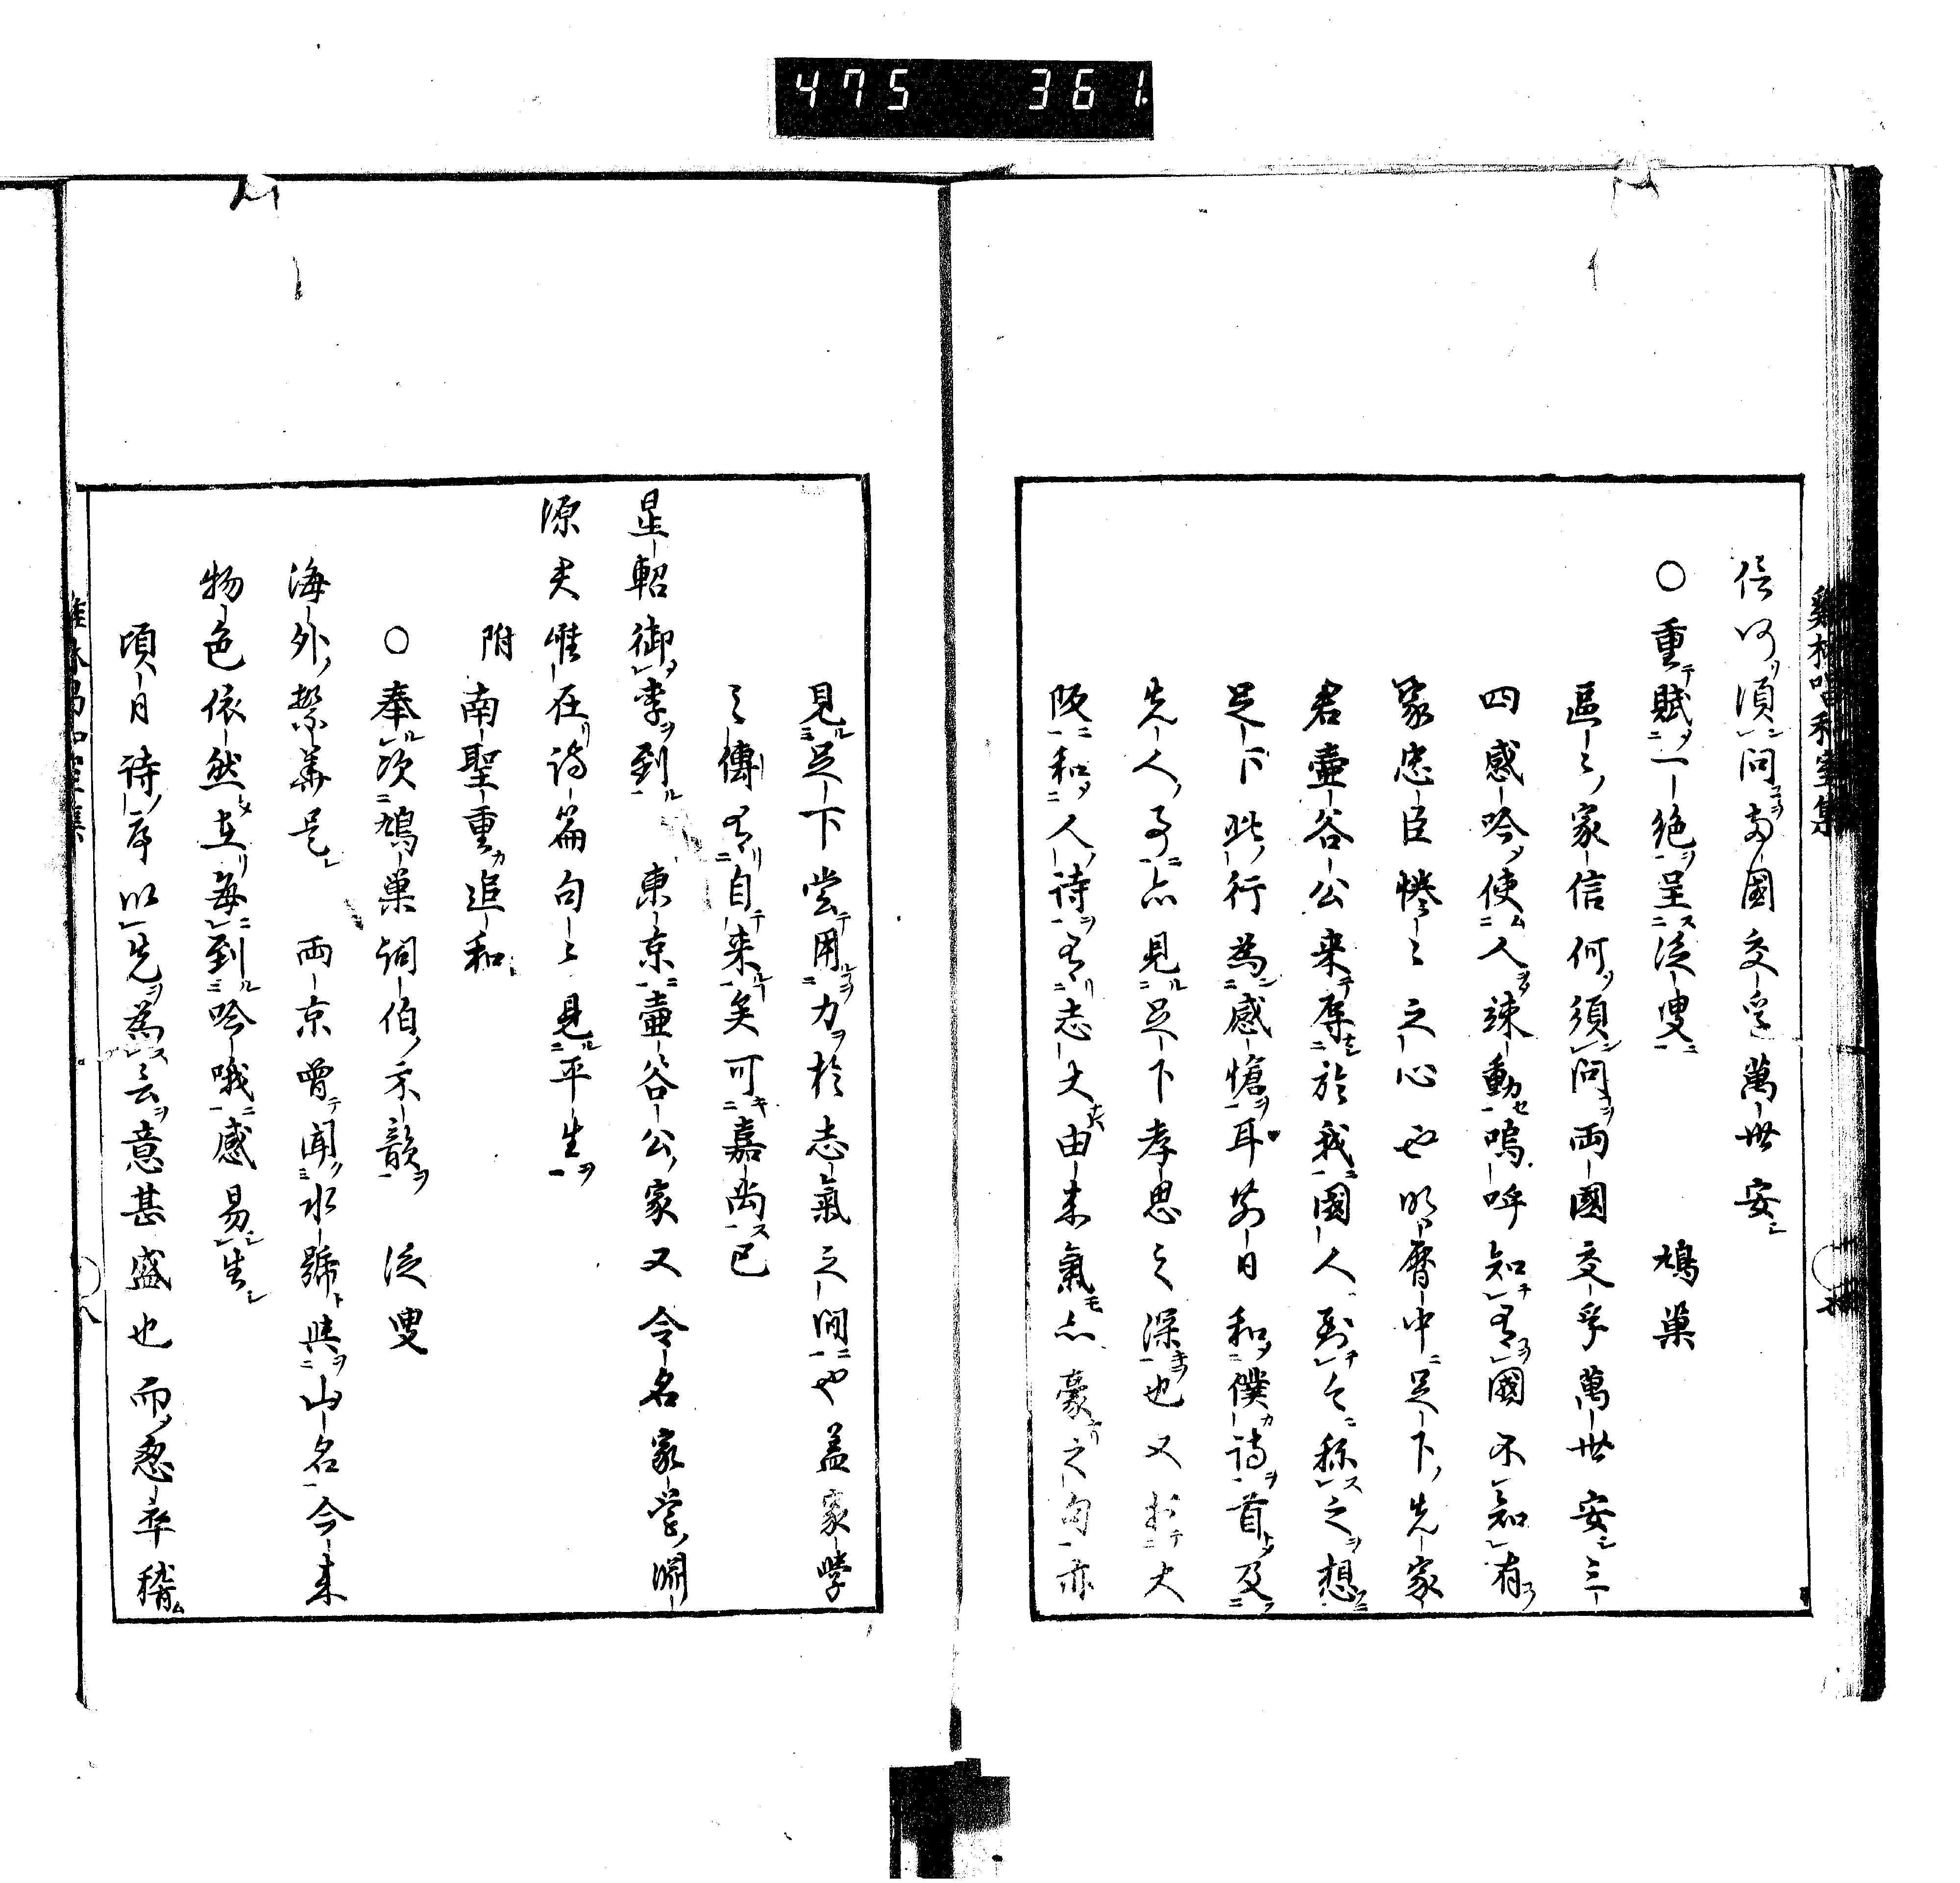 475 361
雞林唱和室集
信何須問両國交孚萬世安
○重賦一絶呈泛叟 鳩巣
區々家信何須問両國交孚萬世安三
四感吟使人竦動嗚呼知有國不知有
家忠臣惓々之心也明暦中足下先家
君壷谷公来辱於我國人到今称之想
足下此行為感愴耳前日和僕詩首及
先人子亦見足下孝思之深也又於大
阪和人詩有志大由来氣亦豪之句亦
見足下嘗用力於志氣之間也盖家學
之傳有自来矣可嘉尚已
星軺御李到東京壷谷公家又令名家学淵
源夫唯在詩篇句上見平生
附南聖重追和
○奉次鳩巣詞伯示韻 泛叟
海外繁華是両京曾聞水號與山名今来
物色依然在每到吟哦感易生
頃日詩序以先為言意甚盛也而怱卒稽